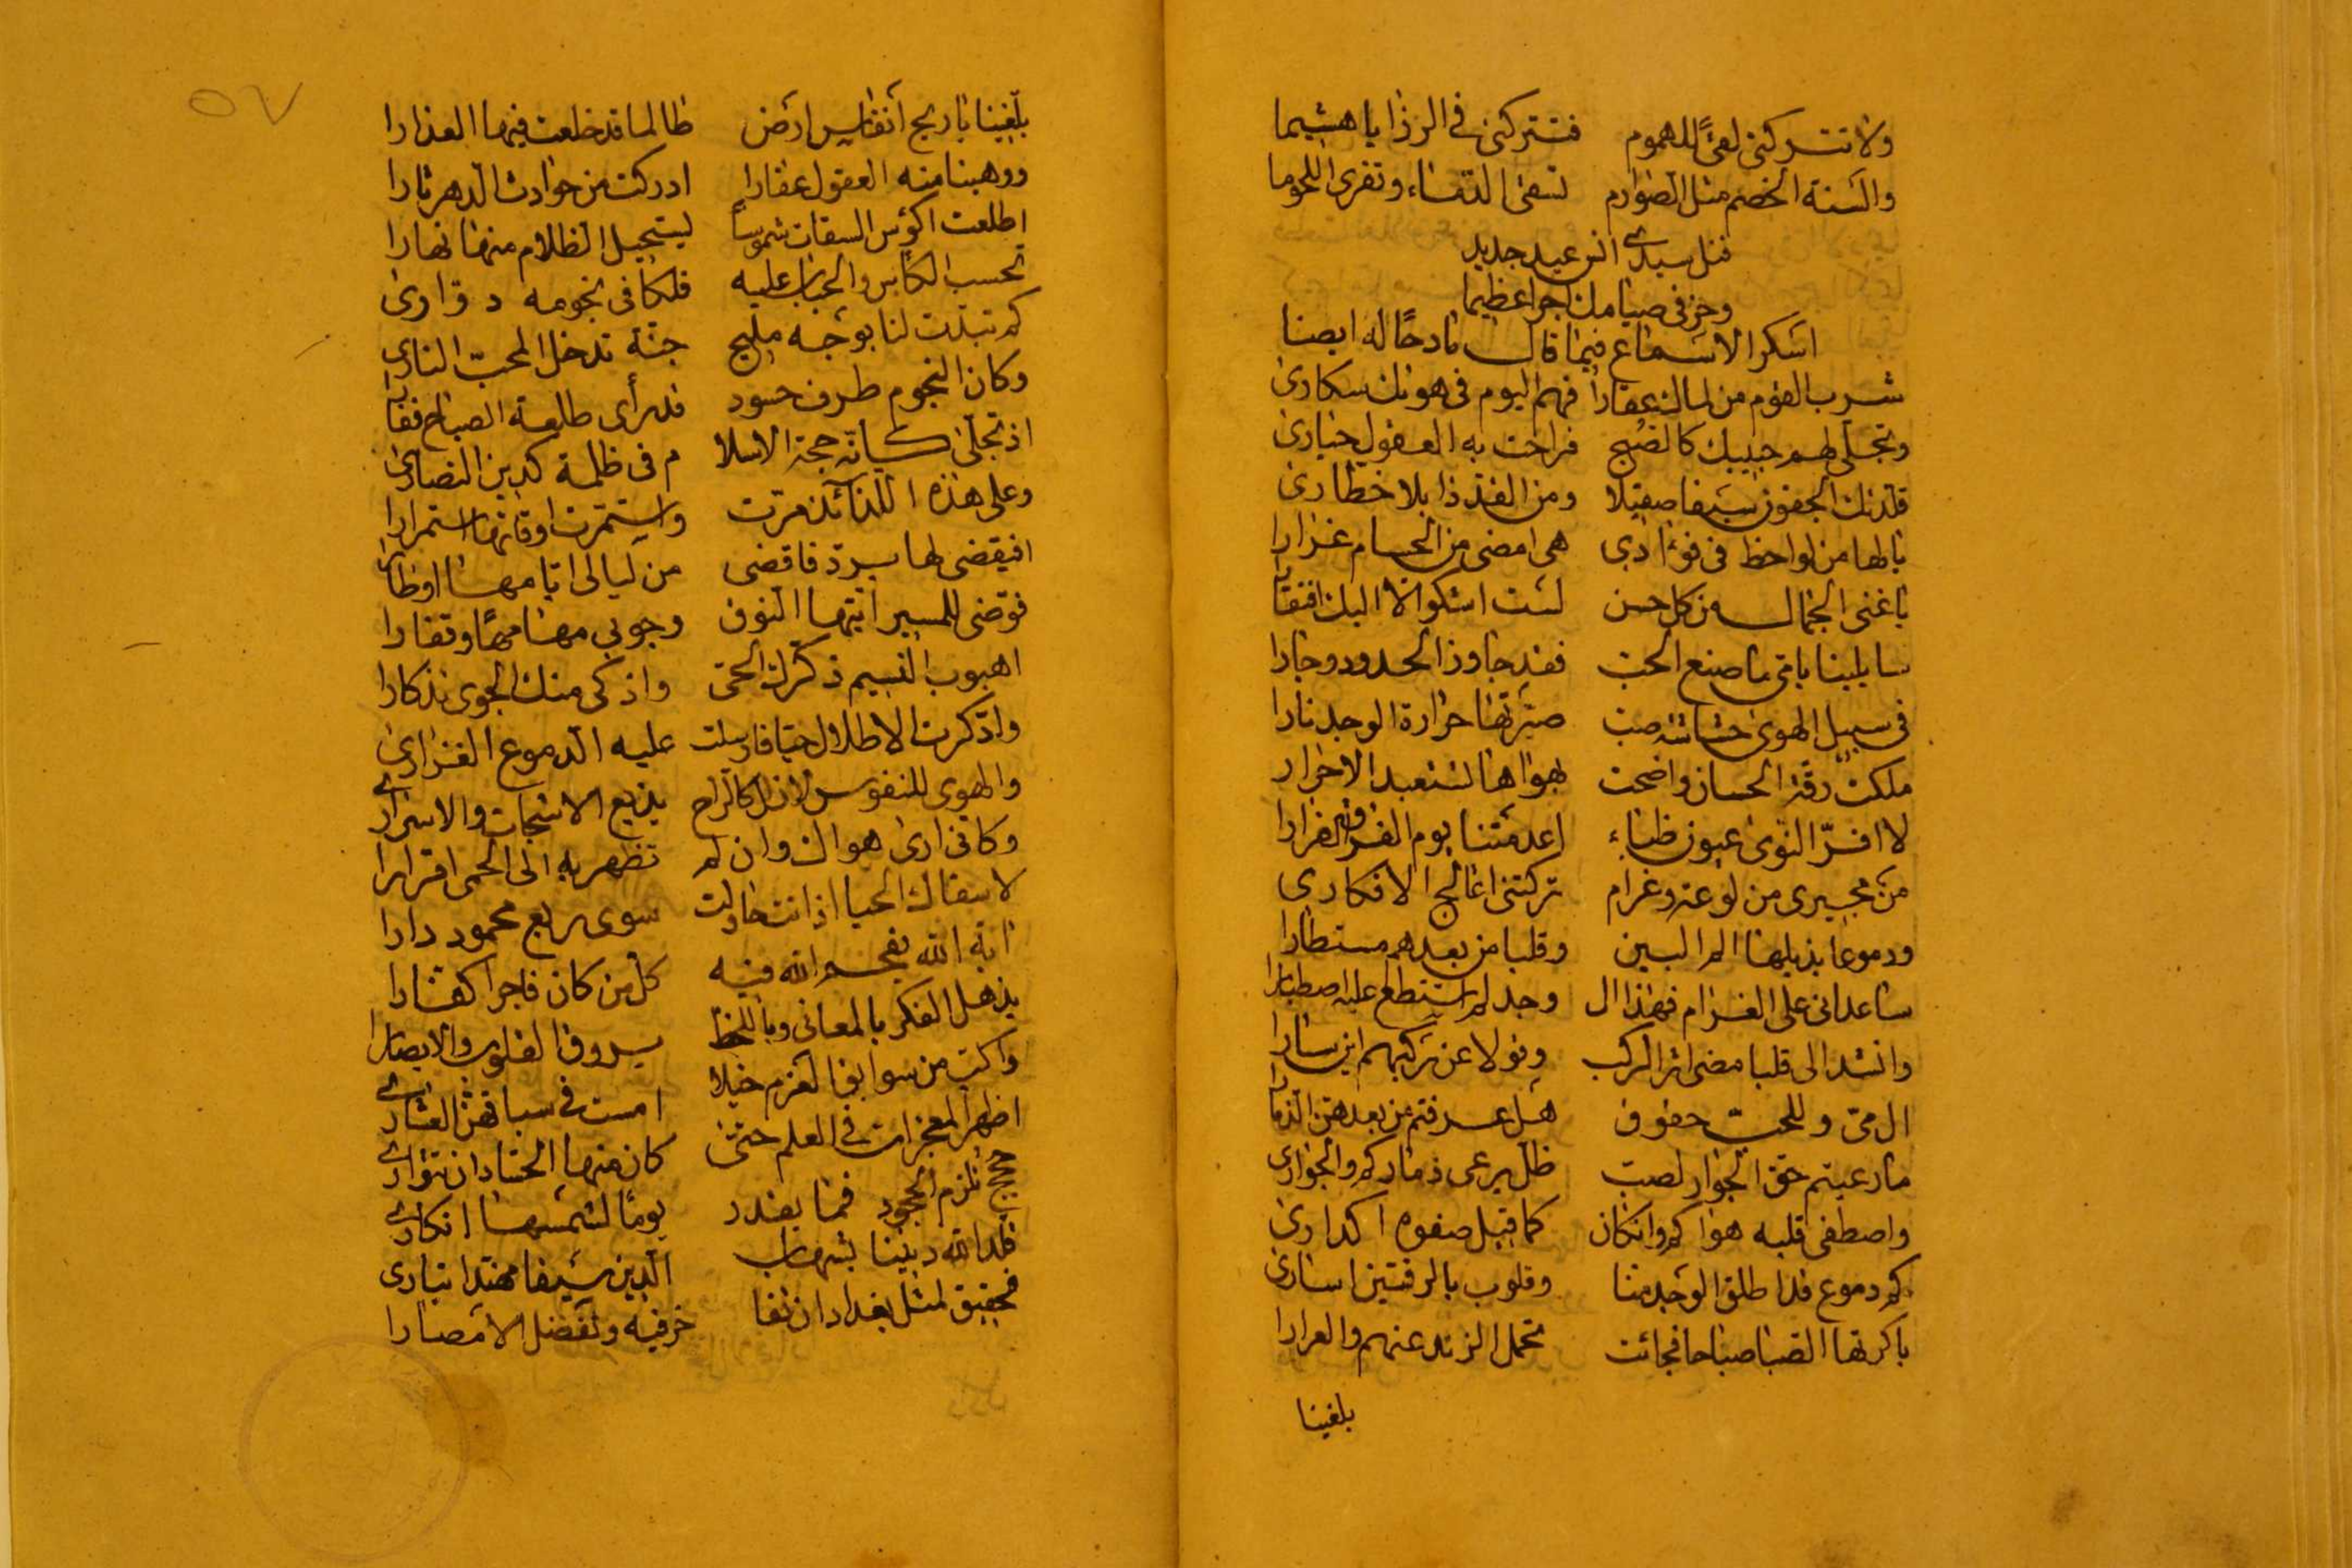 ولا تتركني لقىً للهموم فتتركني في الرزايا هشيما
والسنة الخصم مثل الصوارم تسقى الدماء وتفرى اللحوما
فنل سيدي انس عيد جديد
وحز في صيامك اجرا عظيما
اسكر الاسماع فيما قال مادحًا له ايضا
شرب القوم من لماك عقارا فهم اليوم في هواك سكارى
وتجلى لهم جبينك كالصبح فراحت به العقول حيارى
قلدتك الجفون سيفا صقيلا ومن القد ذابلا خطارى
يالها من لواحظ في فوءادي هي امضى من الحسام غرارا
يا غني الجمال من كل حسن لست اشكو الا اليك افتقارا
سايلينا يا مي ما صنع الحب فقد جاوز الحدود وجارا
في سبيل الهوى حشاشة صب صيرتها حرارة الوجد نارا
ملكت رقة الحسان واضحت بهواها تستعبد الاحرار
لا اقرّ النوى عيون ظباء اعدمتنا يوم الفراق القرارا
من مجيري من لوعة وغرام تركتني اعالج الافكاري
ودموعا يذيلها الم البين وقلبا من بعدهم مستطارا
ساعداني على الغرام فهذا ال وجد لم استطع عليه اصطبارا
وانشدا لي قلبا مضى اثر الركب وقولا عن ركبهم اين سارا
ال مي وللمحب حقوق هل عرفتم من بعدهن الذمارا
ما رعيتم حق الجوار لصب ظل يرعى ذماركم والجوارى
واصطفى قلبه هواكم وان كان كما قيل صفوه اكدارى
كم دموع قد اطلق الوجد منا وقلوب بالرقتين اسارى
باكرتها الصبا صباحا فجائت تحمل الرند عنهم والعرارا
بلغينا
٥٧
بلغينا يا ريح انفاس ارض طالما قد خلعت فيها العذارا
ووهبنا منه العقول عقارا ادركت من حوادث الدهر ثارا
اطلعت اكؤس السقات شموساً ليستحيل الظلام منها نهارا
تحسب الكأس والحباب عليه فلكا في نجومه دوارى
كم تبدت لنا بوجه مليح جنة تدخل المحب النارى
وكان النجوم طرف حسود قد رأى طالعة الصباح فغارا
اذ تجلى كانه حجة الاسلا م في ظلمة كدين النصارى
وعلى هذه اللذائذ مرت واستمرت اوقاتها استمرارا
افيقضى لها برد فاقضى من ليالي ايامها اوطارا
فوضى للمسير ايتها النوق وجوبي مهامهًا وقفارا
اهبوب النسيم ذكرك الحي واذكى منك الجوى تذكارا
واذكرت الاطلال حيا فارسلت عليه الدموع الغزارى
والهوى للنفوس لا زال كالراح يذيع الاشجان والاسراري
وكاني ارى هواك وان لم تظهر به الى الحمى اقرارا
لا سقاك الحيا اذا انتحاولت سوى ربع محمود دارا
اية الله يفحم الله فيه كل من كان فاجرا كفارا
يذهل الفكر بالمعاني وباللحظ يروق القلوب والابصارا
واكتب من سوابق العزم خيلا امست في سباقهن العثارى
اظهر المعجزات في العلم حتى كاد منها الحساد ان تتوارى
حجج تلزم الجحود فما يقدر يومًا لشمسها انكارى
قلد الله ديننا بشهاب الدين سيفا مهندا بتارى
فحقيق لمثل بغداد ان تفا خر فيه وتفضل الامصارا